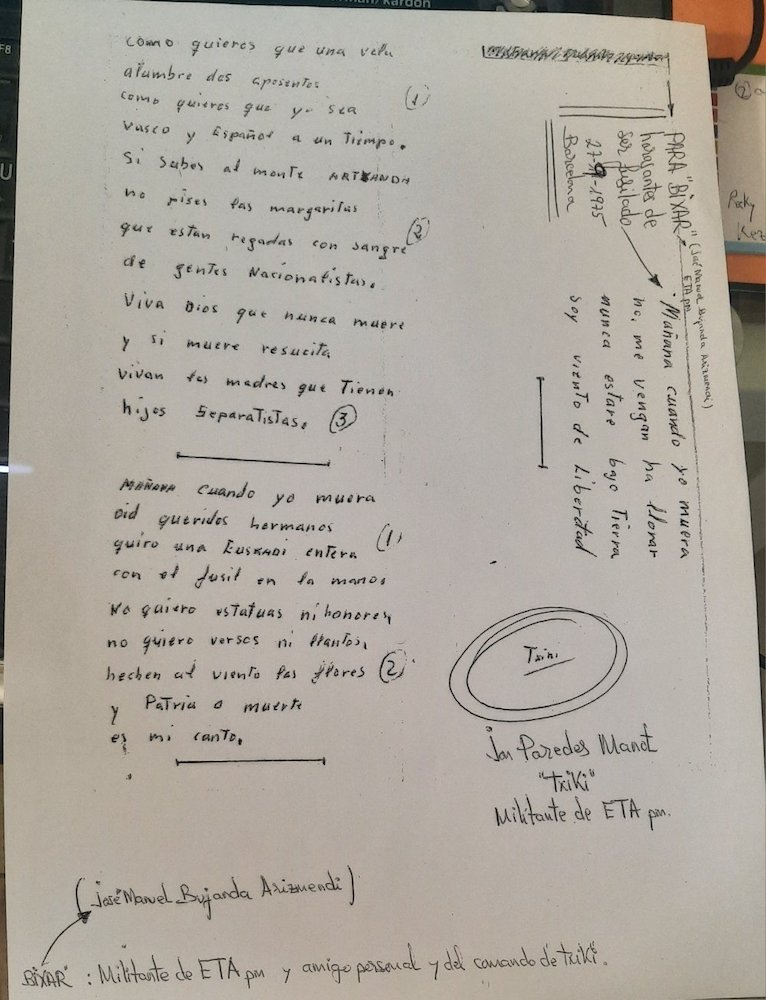 como quieres que una vela
alumbre dos aposentos
como quieres que yo sea (1)
vasco y Español a un Tiempo.
Si subes al monte ARTXANDA
no pises las margaritas
que estan regadas con sangre (2)
de gentes Nacionalistas.
Viva Dios que nunca muere
y si muere resucita
vivan las madres que Tienen
hijos Separatistas. (3)
MAÑANA cuando yo muera
oid queridos hermanos
quiro una EUSKADI entera (1)
con el fusil en la manos
No quiero estatuas ni honores,
no quiero versos ni llantos,
hechen al viento las flores (2)
y Patria o muerte
es mi canto.
PARA "BIXAR" (José Manuel Bujanda Arizmendi)
ETA pm
horas antes de
ser fusilado
27-9-1975
Barcelona
Mañana cuando yo muera
no, me vengan ha llorar
nunca estare bajo Tierra
soy viento de Libertad
Txiki
Jon Paredes Manot
"TxiKi"
Militante de ETA pm.
(José Manuel Bujanda Arizmendi)
"BIXAR" : Militante de ETA pm y amigo personal y del comando de txiki.
F8
U
harman/kardon